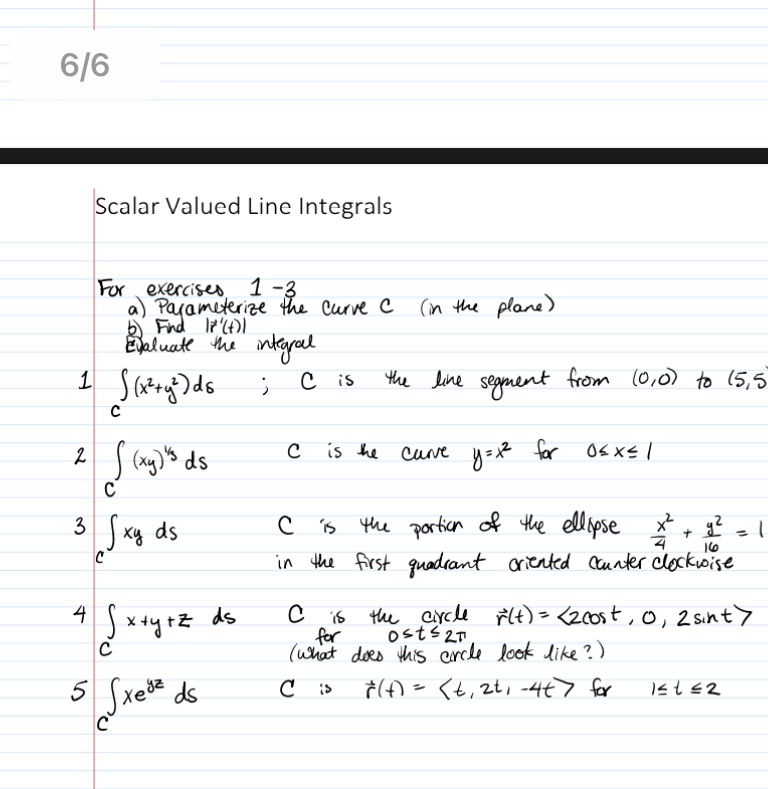 6/6
Scalar Valued Line Integrals
For exercises 1-3
a) Parameterize the curve C (in the plane)
b) Find |r⃗'(t)|
Evaluate the integral
1 ∫_C (x²+y²)ds ; C is the line segment from (0,0) to (5,5
2 ∫_C (xy)^(1/3) ds C is he curve y=x² for 0≤x≤1
3 ∫_C xy ds C is the portion of the ellipse x²/4 + y²/16 = 1
in the first quadrant oriented counter clockwise
4 ∫_C x+y+z ds C is the circle r⃗(t) = <2cost, 0, 2sint>
for 0≤t≤2π
(what does this circle look like?)
5 ∫_C xe^(yz) ds C is r⃗(t) = <t, 2t, -4t> for 1≤t≤2